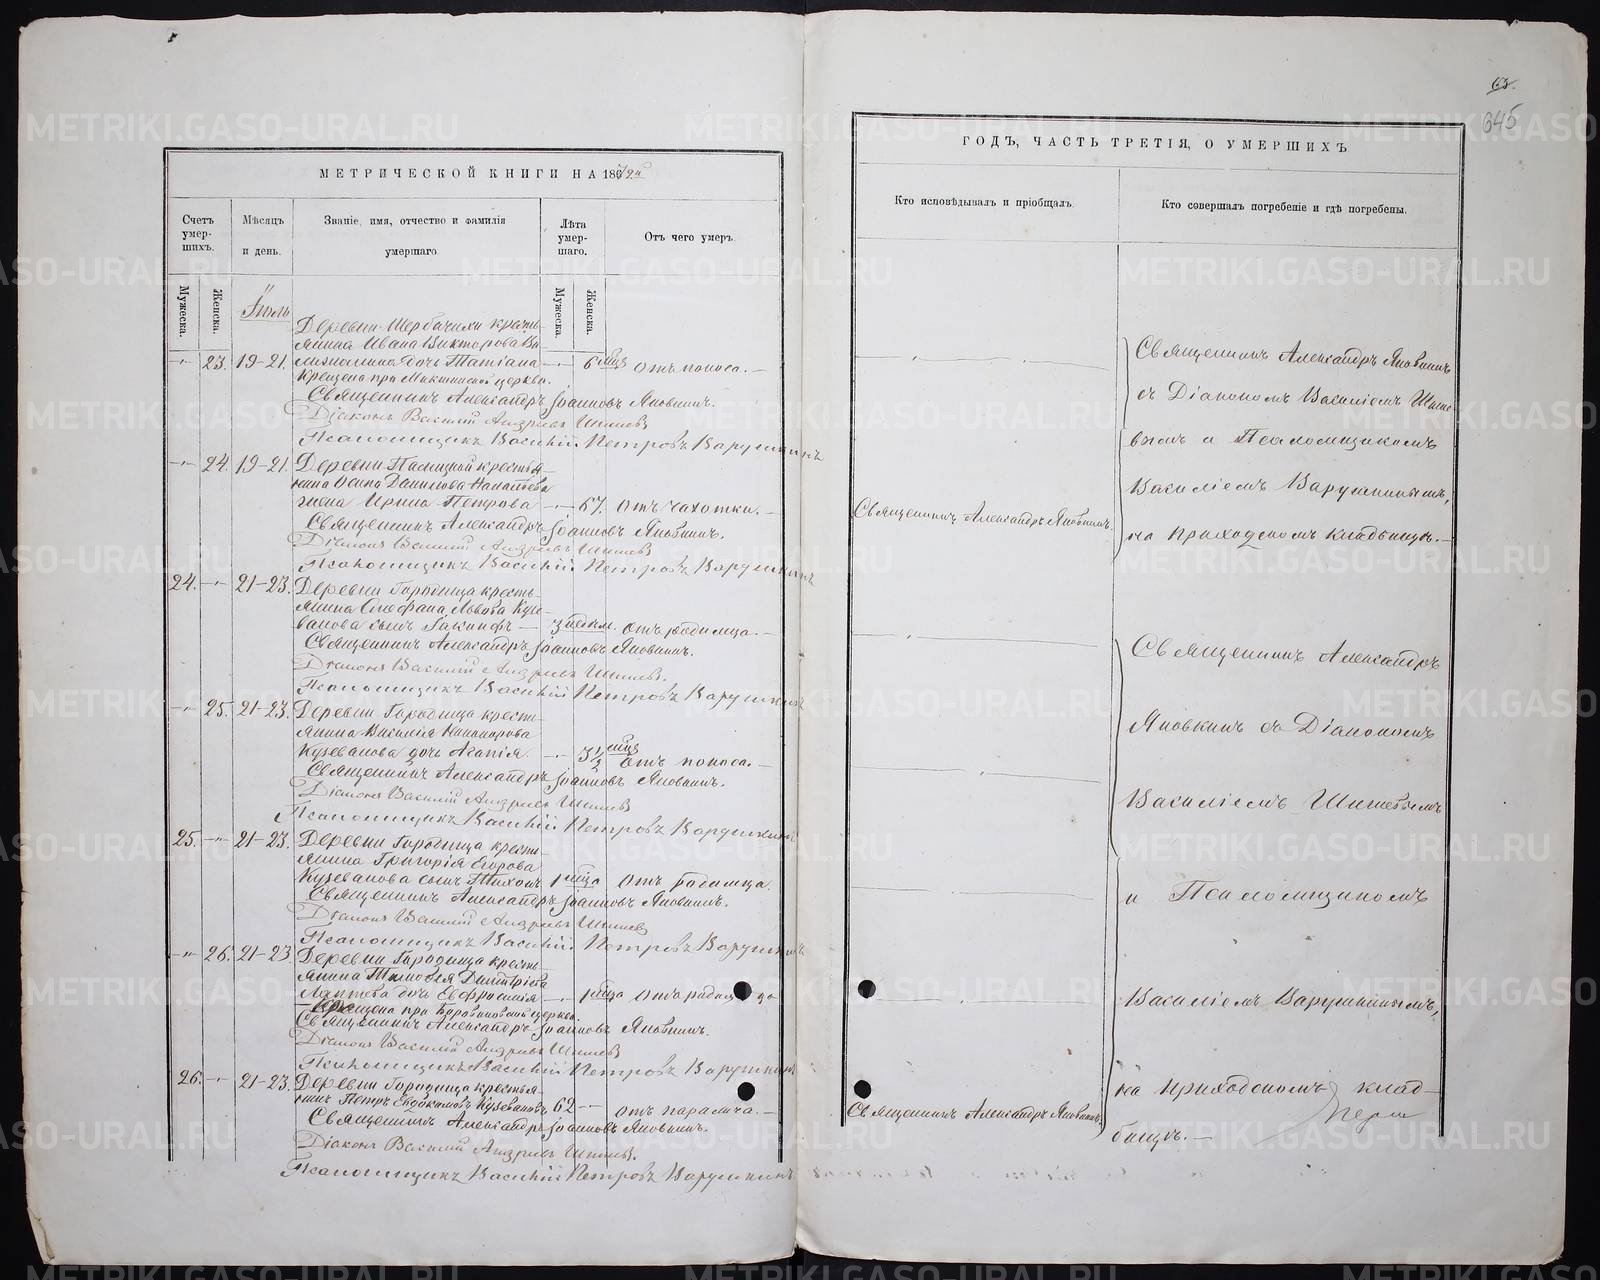 МЕТРИЧЕСКОЙ КНИГИ НА 1872й
Счетъ умер-шихъ.
Мѣсяцъ и день.
Званіе, имя, отчество и фамилія умершаго
Лѣта умер-шаго.
Отъ чего умеръ.
Мужеска.
Женска.
Мужеска.
Женска.
Іюль
Деревни Щербачихи кресть-
янина Ивана Викторова
23. 19-21. дочь Татіана 6 мца Отъ поноса.
Крещена при церкви.
Священникъ Александръ Іоанновъ Яновкинъ.
Діаконъ Василій Андреевъ Шишевъ
Псаломщикъ Василій Петровъ Варушкинъ
24. 19-21. Деревни крестья-
нина Осипа Данилова
жена Ирина Петрова 67. Отъ чахотки.
Священникъ Александръ Іоанновъ Яновкинъ.
Діаконъ Василій Андреевъ Шишевъ
Псаломщикъ Василій Петровъ Варушкинъ
24. 21-23. Деревни Городища кресть-
янина Стефана Львова Кузе-
ванова сынъ Іакинфъ 3 недѣл. Отъ родимца.
Священникъ Александръ Іоанновъ Яновкинъ.
Діаконъ Василій Андреевъ Шишевъ.
Псаломщикъ Василій Петровъ Варушкинъ
25. 21-23. Деревни Городища кресть-
янина Василія Никанорова
Кузеванова дочь Агапія 3 1/2 мца Отъ поноса.
Священникъ Александръ Іоанновъ Яновкинъ.
Діаконъ Василій Андреевъ Шишевъ
Псаломщикъ Василій Петровъ Варушкинъ
25. 21-23. Деревни Городища кресть-
янина Григорія Егорова
Кузеванова сынъ Тихонъ 1 мца Отъ родимца.
Священникъ Александръ Іоанновъ Яновкинъ.
Діаконъ Василій Андреевъ Шишевъ
Псаломщикъ Василій Петровъ Варушкинъ
26. 21-23. Деревни Городища кресть-
янина Тимофея Димитріева
Лаптева дочь Евфросинія 1 мца Отъ
Крещена при церкви.
Священникъ Александръ Іоанновъ Яновкинъ.
Діаконъ Василій Андреевъ Шишевъ
Псаломщикъ Василій Петровъ Варушкинъ
26. 21-23. Деревни Городища крестья-
нинъ Петръ Евдокимовъ Кузевановъ 62 отъ паралича.
Священникъ Александръ Іоанновъ Яновкинъ.
Діаконъ Василій Андреевъ Шишевъ.
Псаломщикъ Василій Петровъ Варушкинъ
645
ГОДЪ, ЧАСТЬ ТРЕТІЯ, О УМЕРШИХЪ
Кто исповѣдывалъ и пріобщалъ.
Кто совершалъ погребеніе и гдѣ погребены.
Священникъ Александръ Яновкинъ
съ Діакономъ Василіемъ Шише-
вымъ и Псаломщикомъ
Василіемъ Варушкинымъ,
Священникъ Александръ Яновкинъ.
на приходскомъ кладбищѣ.
Священникъ Александръ
Яновкинъ съ Діакономъ
Василіемъ Шишевымъ
и Псаломщикомъ
Василіемъ Варушкинымъ,
на приходскомъ клад-
Священникъ Александръ Яновкинъ.
бищѣ.
METRIKI.GASO-URAL.RU